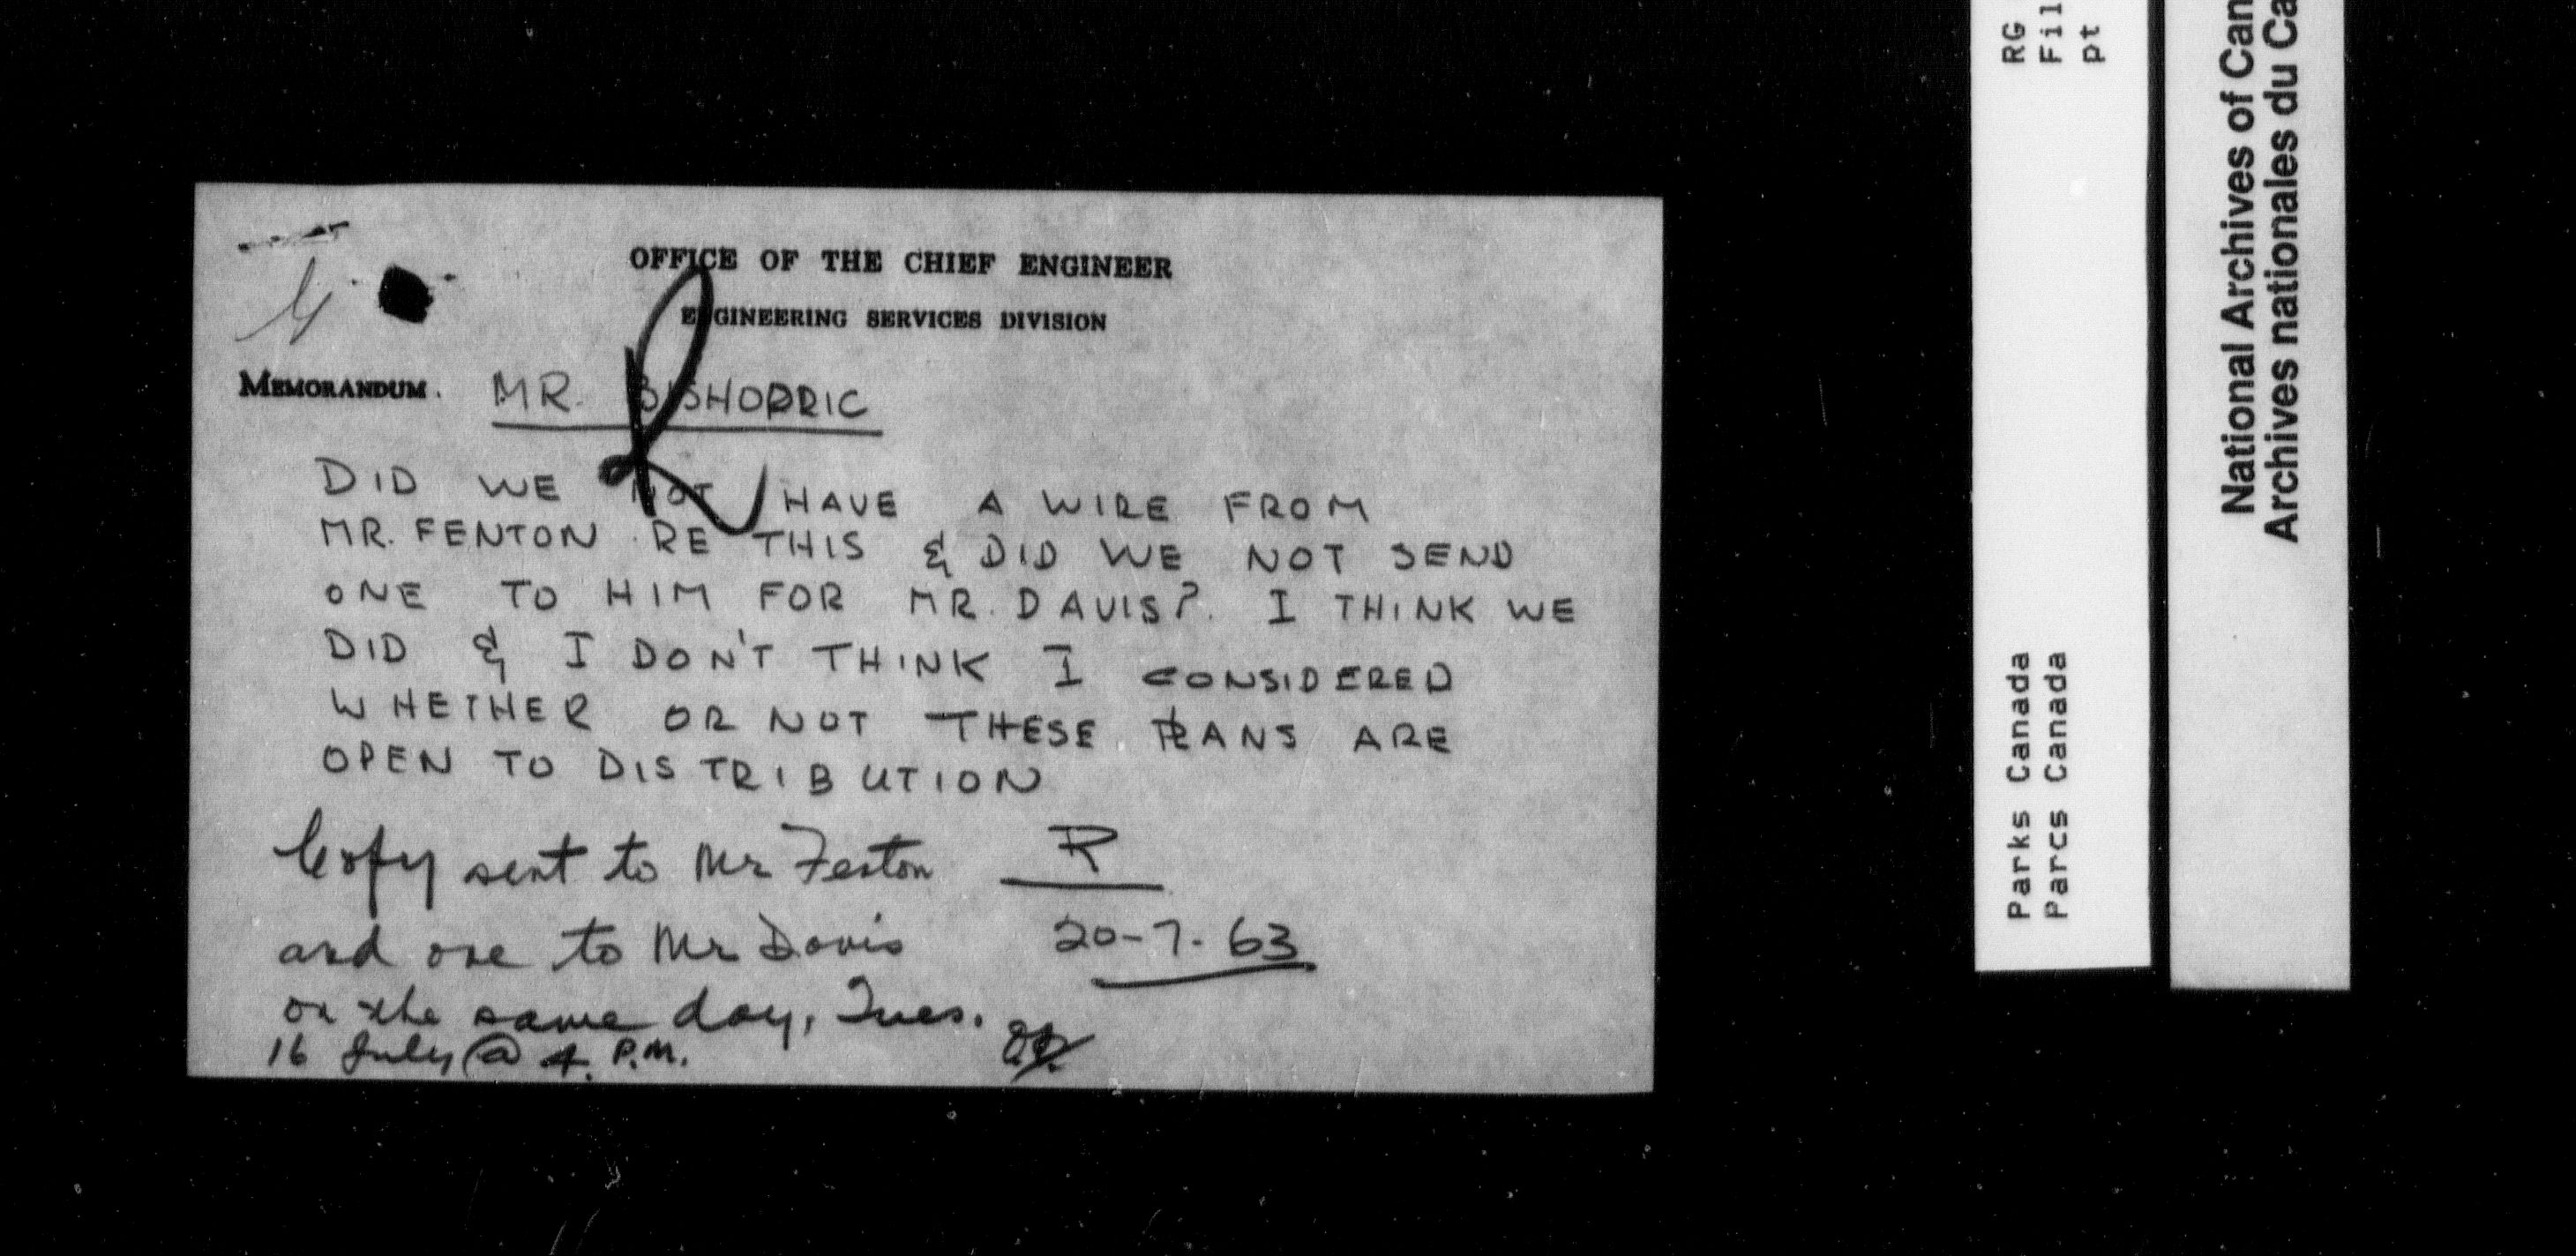 OFFICE OF THE CHIEF ENGINEER
ENGINEERING SERVICES DIVISION
MEMORANDUM. MR. BISHOPRIC
DID WE NOT HAVE A WIRE FROM
MR. FENTON RE THIS & DID WE NOT SEND
ONE TO HIM FOR MR. DAVIS? I THINK WE
DID & I DON'T THINK I CONSIDERED
WHETHER OR NOT THESE PLANS ARE
OPEN TO DISTRIBUTION
Copy sent to Mr Fenton R
and one to Mr Davis 20-7-63
on the same day, Tues.
16 July @ 4. P.M.
RG
Fil
pt
Parks Canada
Parcs Canada
National Archives of Can
Archives nationales du Ca